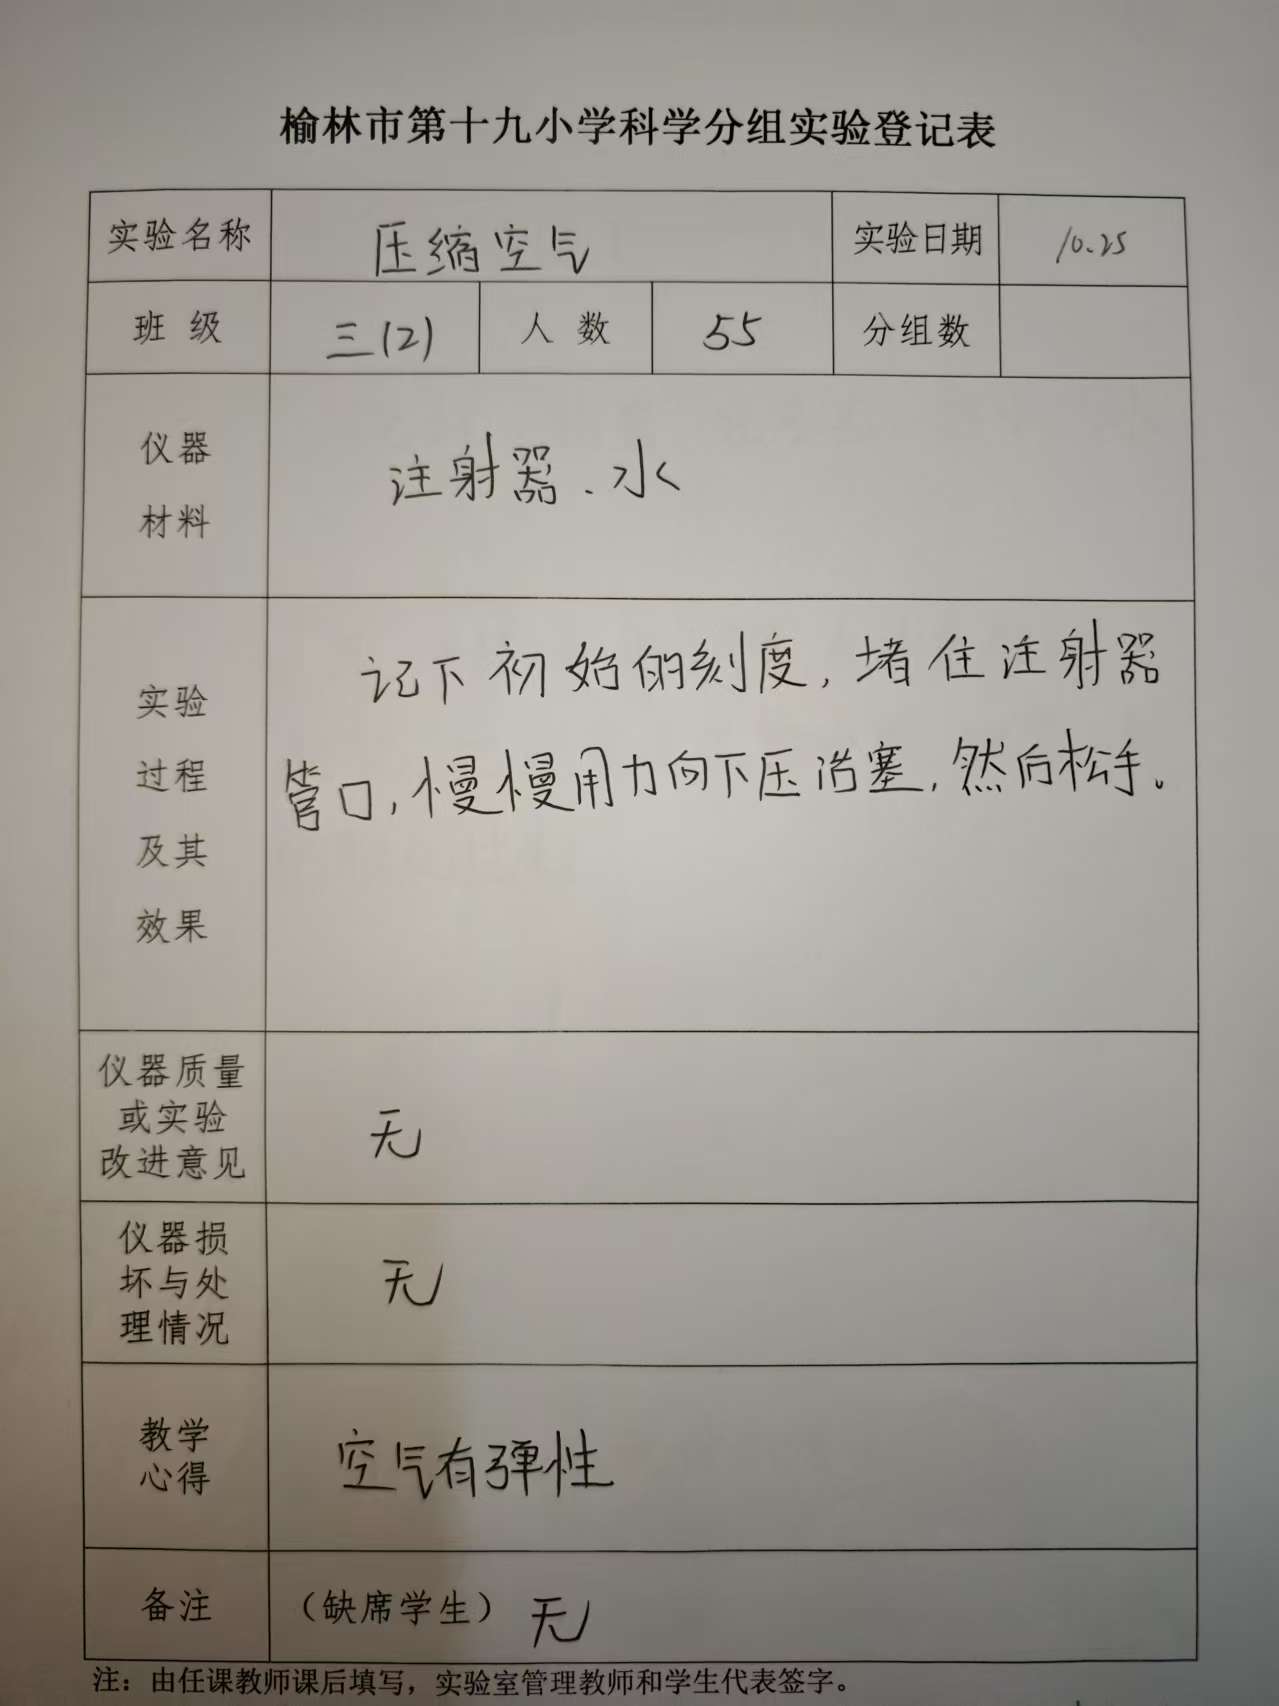 榆林市第十九小学科学分组实验登记表
实验名称 压缩空气 实验日期 10.25
班级 三(2) 人数 55 分组数
仪器
材料
注射器、水
实验
过程
及其
效果
记下初始的刻度，堵住注射器
管口，慢慢用力向下压活塞，然后松手。
仪器质量
或实验
改进意见
无
仪器损
坏与处
理情况
无
教学
心得
空气有弹性
备注 （缺席学生）无
注：由任课教师课后填写，实验室管理教师和学生代表签字。